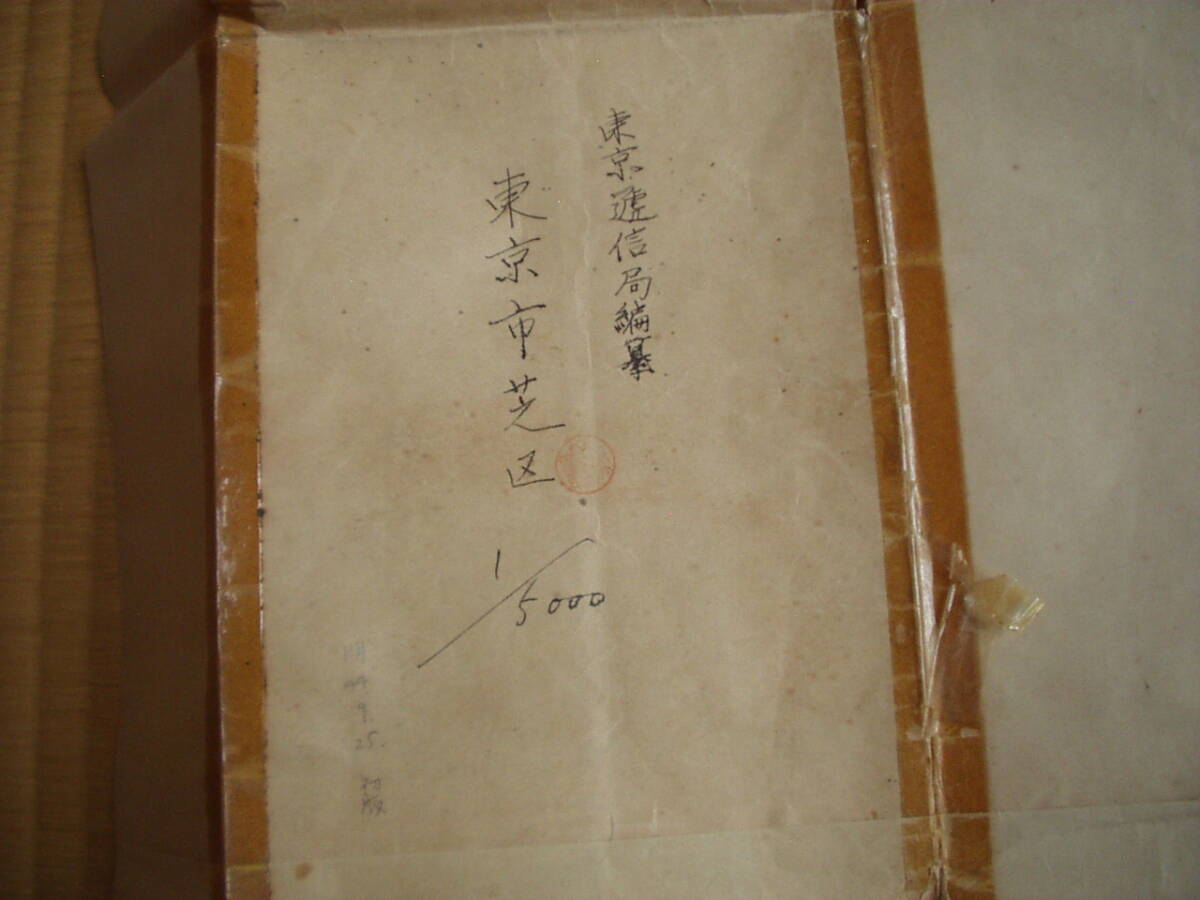 東京逓信局編纂
東京市芝区
1/5000
明44.9.25.初版